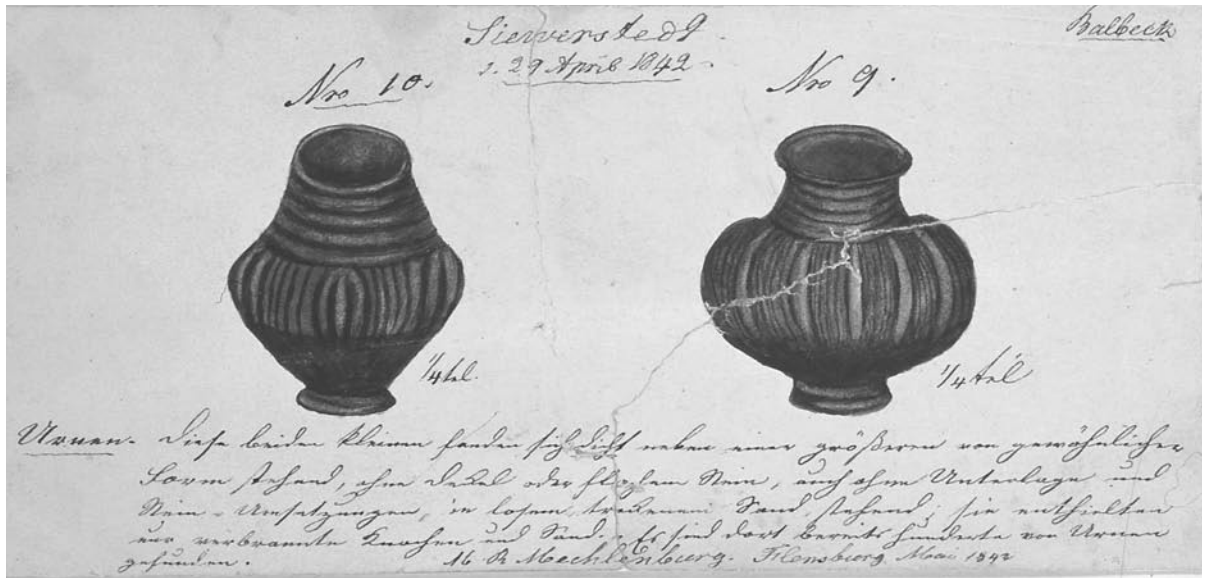 Sieverstedt.
d. 29 April 1842.
Balbeck
Nro 10.
Nro 9.
1/4tel.
1/4tel
Urnen. Diese beiden kleinen fanden sich dicht neben einer größeren von gewöhnlicher
Form stehend, ohne Deckel oder flachem Stein, auch ohne Unterlage und
Stein-Umsetzungen, in losem, trockenem Sand stehend; sie enthielten
nur verbrannte Knochen und Sand. Es sind dort bereits hunderte von Urnen
gefunden.
Mechlenburg. Flensburg Mai 1842